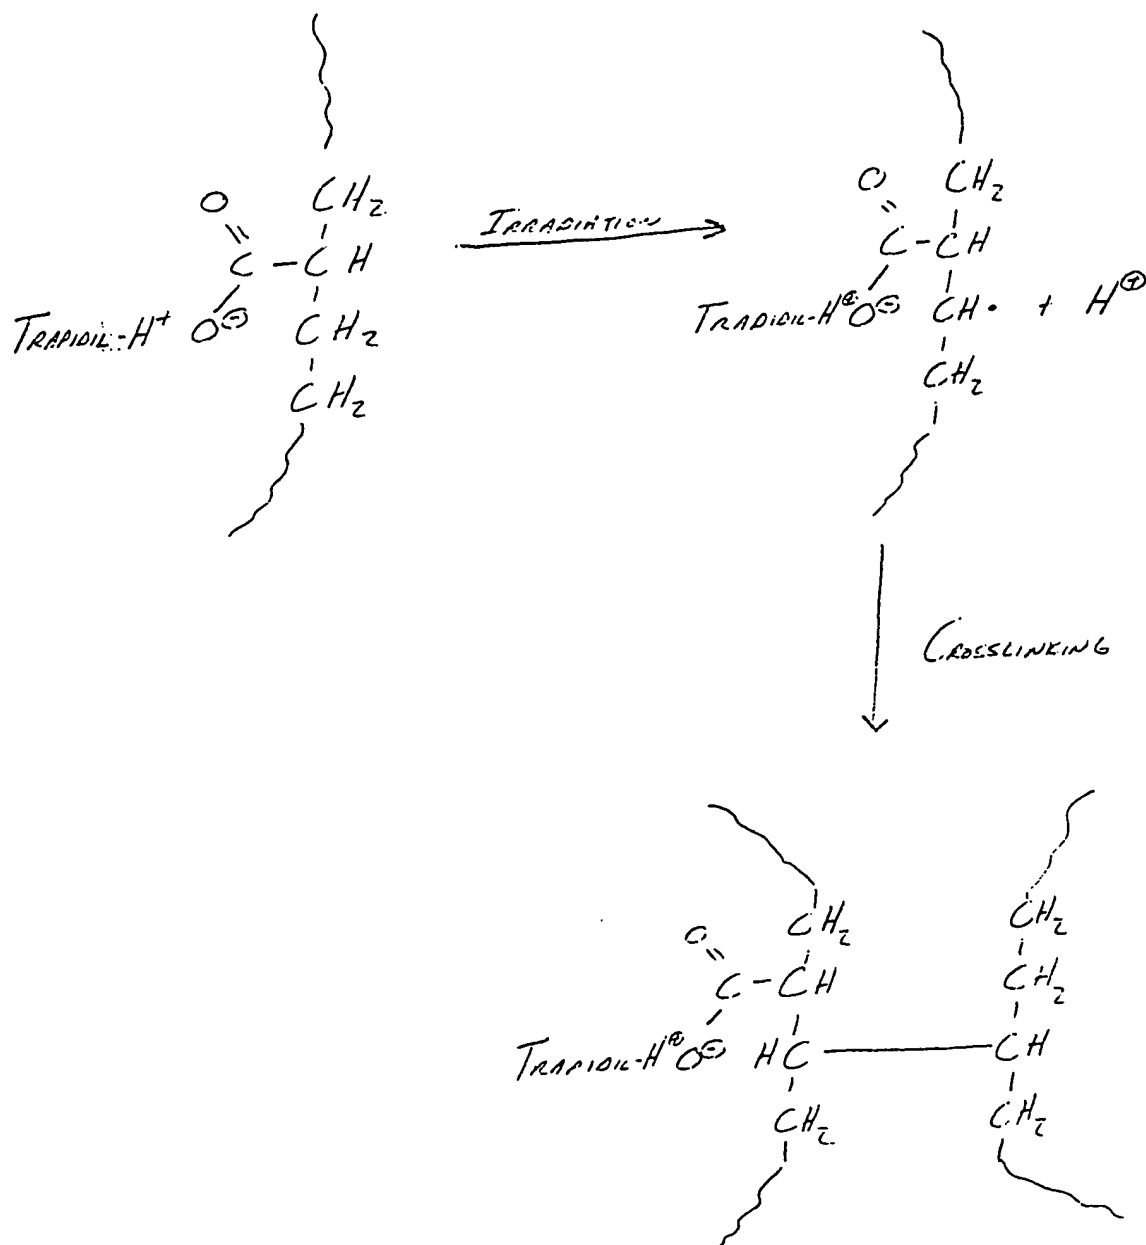 CH2
O
C - CH
TRAPIDIL-H+ O⊖ CH2
CH2
IRRADIATION
CH2
O
C - CH
TRADIDIL-H⊕ O⊖ CH• + H⊕
CH2
CROSSLINKING
CH2 CH2
O
C - CH CH2
TRAPIDIL-H⊕ O⊖ HC CH
CH2 CH2